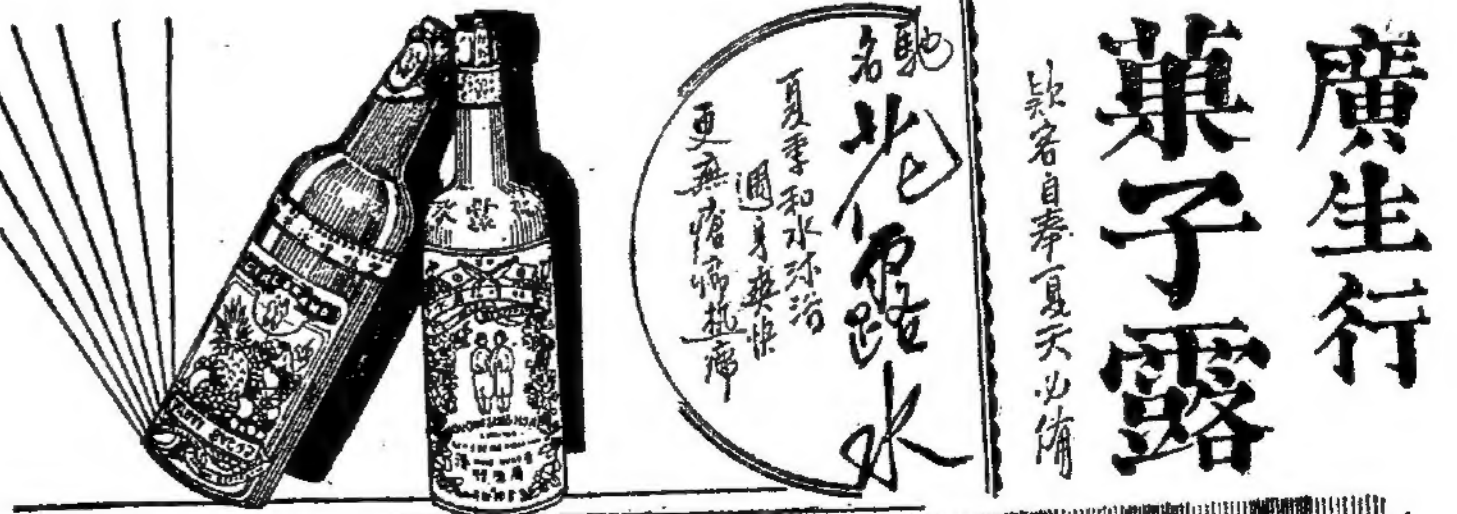 廣生行
菓子露
欵客自奉夏天必備
馳名
花露水
夏季和水沐浴
週身爽快
更無瘡痱熱痱